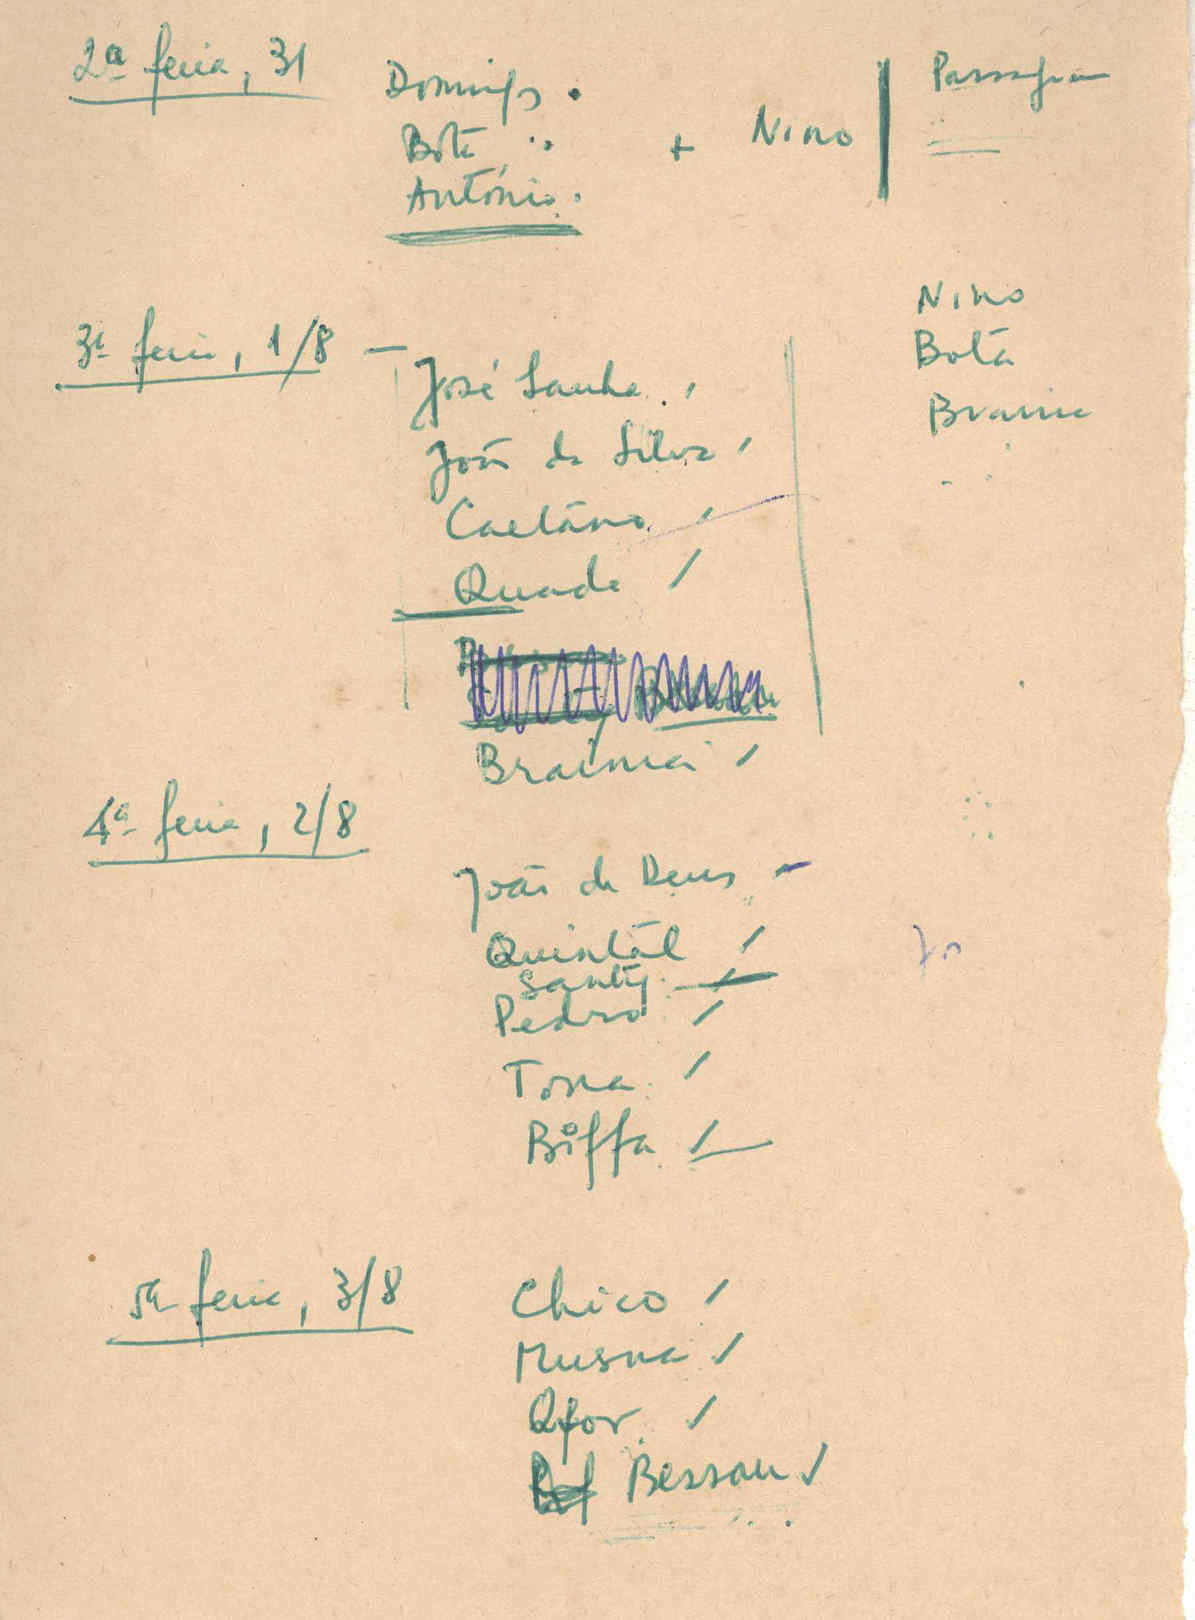 2ª feira, 31
Domingos
Botã
António
+ Nino
Passagem
Nino
Botã
Braima
3ª feira, 1/8 —
José Sanha
João da Silva
Caetano
Quade
Braima
4ª feira, 2/8
João de Deus
Quintál
Santy
Pedro
Tona
Biffa
5ª feira, 3/8
Chico
Musna
Qfor
Bessan